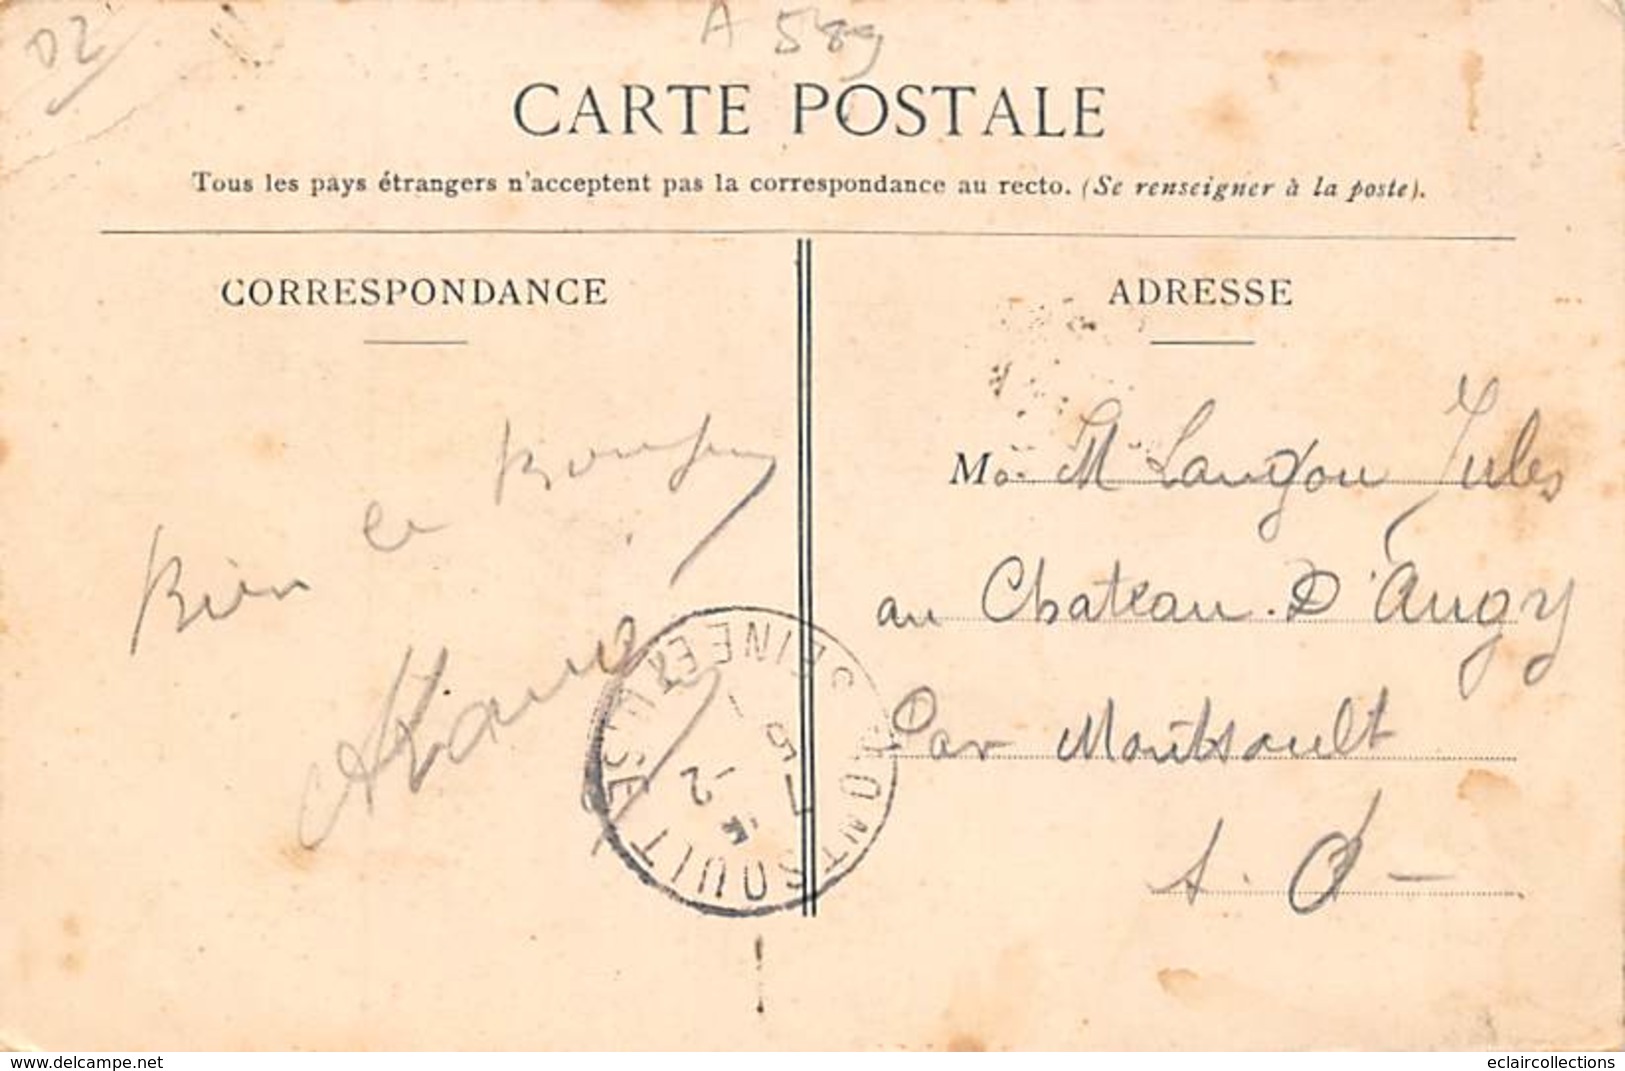 02
A 589
CARTE POSTALE
Tous les pays étrangers n'acceptent pas la correspondance au recto. (Se renseigner à la poste).
CORRESPONDANCE
ADRESSE
Bien le
M M Langou Jules
au Chateau D'Augy
Par Montsoult
S. O —
MONTSOULT SEINE ET OISE
www.delcampe.net
eclaircollections